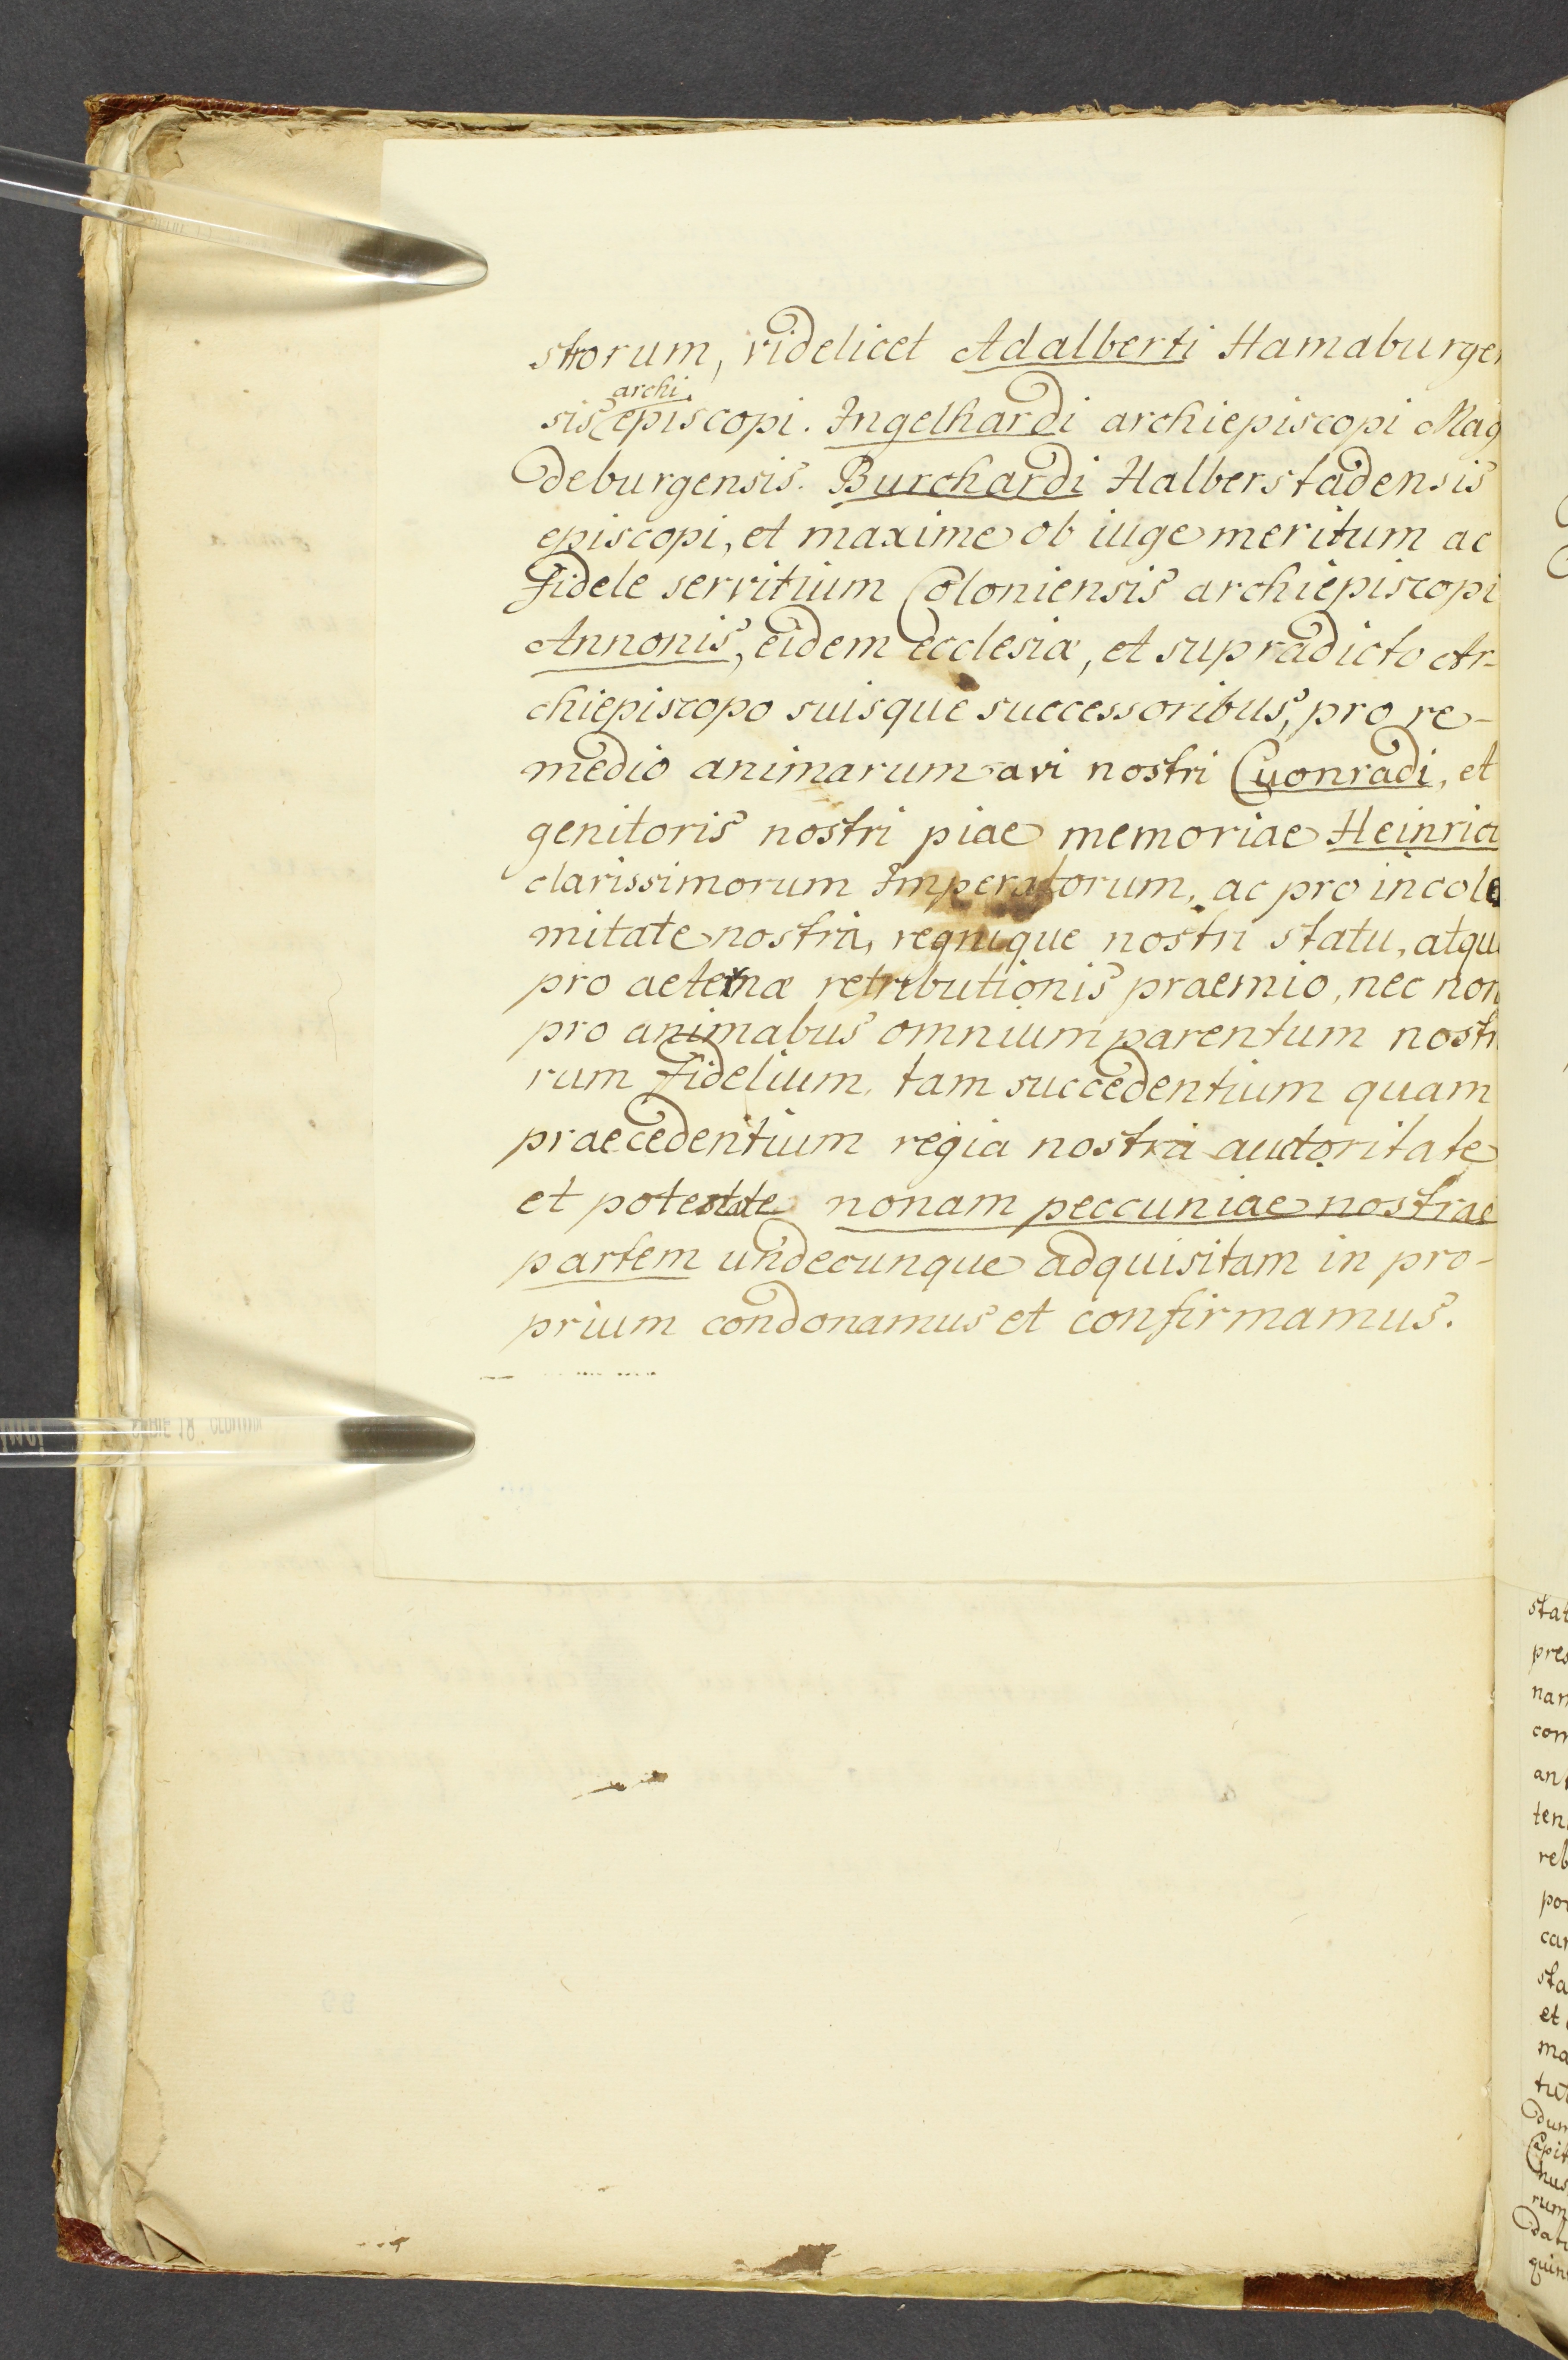 strorum, videlicet Adalberti Hamaburgen
archi
sis episcopi. Ingelhardi archiepiscopi Mag
deburgensis. Burchardi Halberstadensis
episcopi, et maxime ob iuge meritum ac
fidele servitium Coloniensis archiepiscopi
Annonis, eidem ecclesiæ, et supradicto Ar-
chiepiscopo suisque successoribus, pro re-
medio animarum avi nostri Cuonradi, et
genitoris nostri piae memoriae Heinrici
clarissimorum Imperatorum, ac pro incole
mitate nostra, regnique nostri statu, atque
pro aeternæ retributionis praemio, nec non
pro animabus omnium parentum nostr
rum fidelium, tam succedentium quam
praecedentium regia nostra auctoritate
et potestate nonam peccuniae nostrae
partem undecunque adquisitam in pro-
prium condonamus et confirmamus.
stat
pres
nam
com
ant
ten
reb
por
car
sta
et
ma
tut
dum
Capit
nus
rum
dat
quin